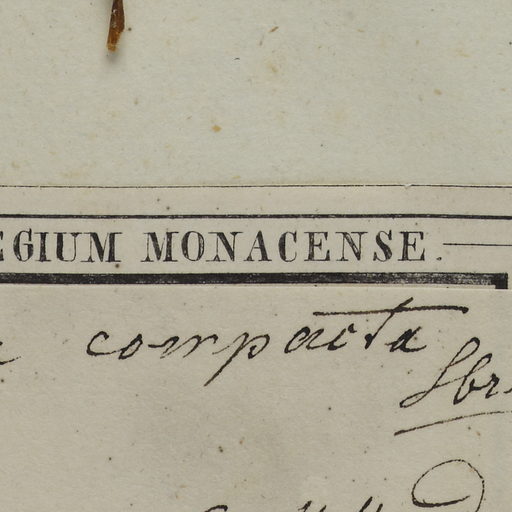 EGIUM MONACENSE.
compacta
Sbr